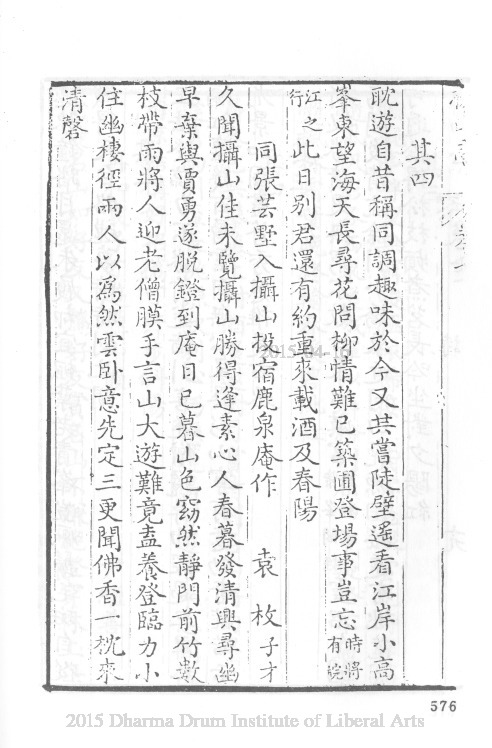 其四
耽遊自昔稱同調趣味於今又共嘗陡壁遙看江岸小高
峯東望海天長尋花問柳情難已築圃登場事豈忘時將有皖
江之行此日別君還有約重來載酒及春陽
同張芸墅入攝山投宿鹿泉庵作 袁枚子才
久聞攝山佳未覽攝山勝得逢素心人春暮發清興尋幽
早棄輿賈勇遂脫鐙到庵日已暮山色窈然靜門前竹數
枝帶雨將人迎老僧膜手言山大遊難竟盍養登臨力小
住幽棲徑兩人以爲然雲卧意先定三更聞佛香一枕來
清磬
576
2015 Dharma Drum Institute of Liberal Arts